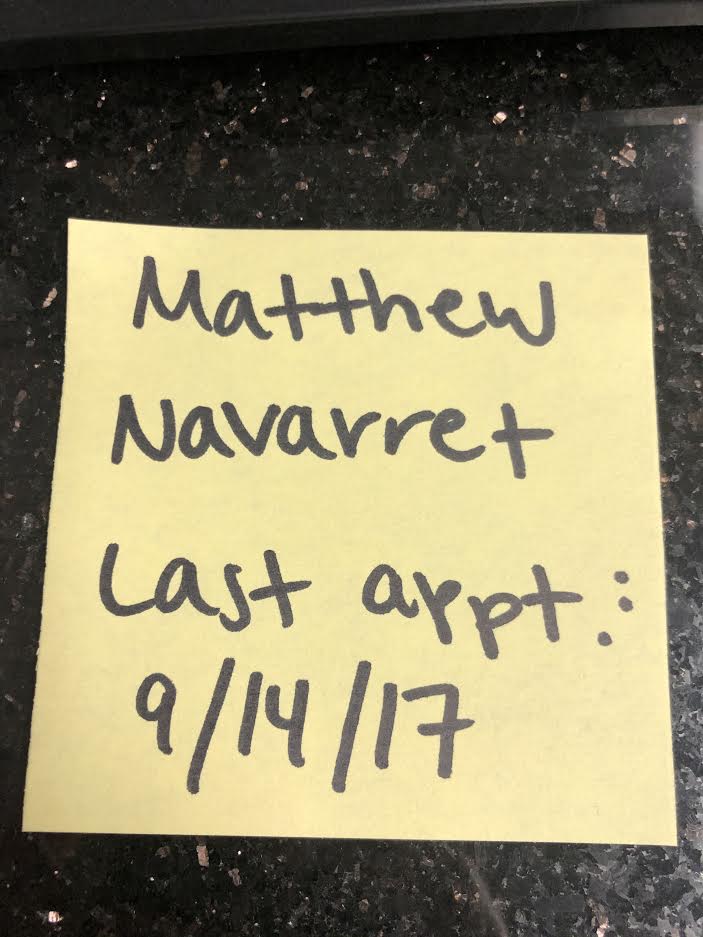 Matthew
Navarret
Last appt.:
9/14/17